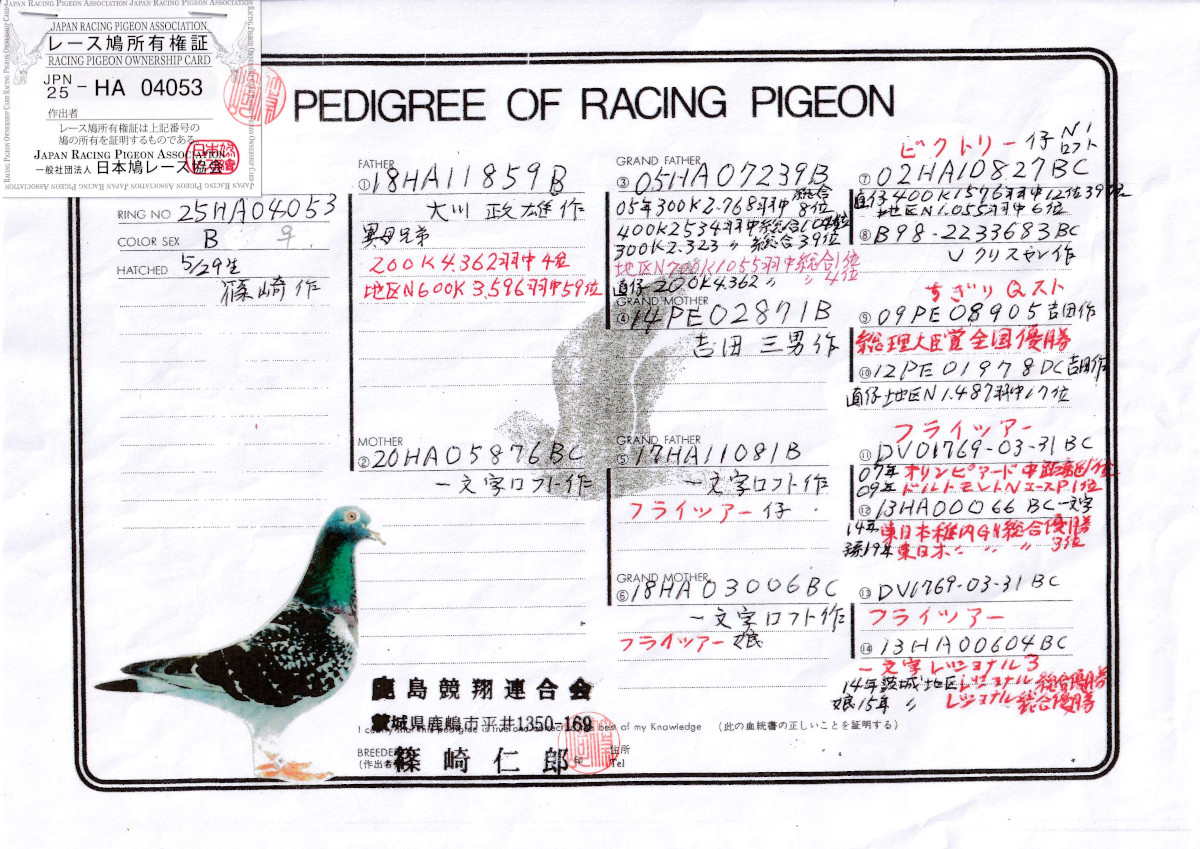 JAPAN RACING PIGEON ASSOCIATION
レース鳩所有権証
RACING PIGEON OWNERSHIP CARD
JPN 25 - HA 04053
作出者
レース鳩所有権証は上記番号の
鳩の所有を証明するものである
JAPAN RACING PIGEON ASSOCIATION
一般社団法人 日本鳩レース協会
PEDIGREE OF RACING PIGEON
RING NO 25HA04053
COLOR SEX B ♀
HATCHED 5/29生
篠崎作
FATHER
①18HA11859B
大川 政雄作
異母兄弟
200K4.362羽中4位
地区N600K3,596羽中59位
MOTHER
②20HA05876BC
一文字ロフト作
GRAND FATHER
③05HA07239B
05年300K2.768羽中総合8位
400K2534羽中総合104位
300K2.323 〃 総合39位
地区N700K1055羽中総合1位
直仔 200K4.362 〃 〃 4位
GRAND MOTHER
④14PE02871B
吉田 三男作
GRAND FATHER
⑤17HA11081B
一文字ロフト作
フライツアー仔
GRAND MOTHER
⑥18HA03006BC
一文字ロフト作
フライツアー娘
ビクトリー仔 N1ロフト
⑦02HA10827BC
直仔400K1576羽中12位39位
地区N1.055羽中6位
⑧B98-2233683BC
作
⑨09PE08905吉田作
総理大臣賞全国優勝
⑩12PE01978DC吉田作
直仔地区N1.487羽中17位
フライツアー
⑪DV01769-03-31BC
07年オリンピアード中距離1位
09年ドルトモントNエースP1位
⑫13HA00066BC一文字
14年東日本稚内GN総合優勝
孫19年東日本 〃 〃 〃 3位
⑬DV1769-03-31BC
フライツアー
⑭13HA00604BC
一文字レジョナル3
14年茨城地区レジョナル総合優勝
娘15年 〃 レジョナル総合優勝
鹿島競翔連合会
茨城県鹿嶋市平井1350-169
I certify that this pedigree is true and correct to the best of my Knowledge (此の血統書の正しいことを証明する)
BREEDER
(作出者) 篠崎仁郎 印
住所
Tel